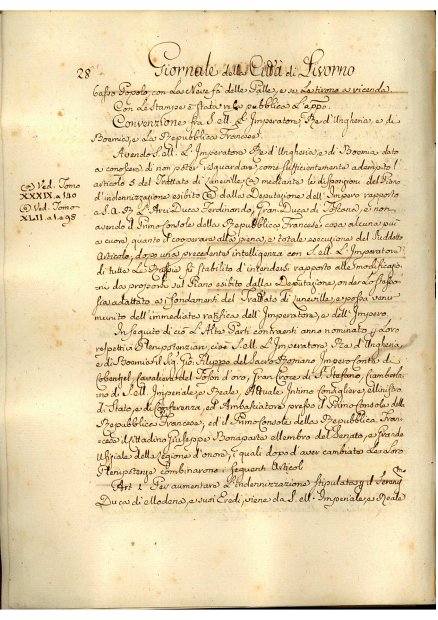 28 Giornale della Città di Livorno
basso Popolo, con la Neve fà delle Palle, e se le tirono a vicenda
Con le Stampe è stata resa pubblica l'appo.
Convenzione fra S. M. l'Imperatore Re d'Ungheria, e di
Boemia, e La Repubblica Francese.
Avendo S. M. L'Imperatore Re d'Ungheria, e di Boemia dato
a conoscere di non poter riguardare, come sufficientemente adempito l'
articolo 5 del Trattato di Luneville, mediante le disposizioni del Piano
Ved. Tomo
XXXIX. a 130
d'indennizzazione esibito dalla Deputazione dell'Impero rapporto
Ved. Tomo
XLII. a 98
a S. A. R. L'Arci Duca Ferdinando, Gran Duca di Toscana, e non
avendo il Primo Console della Repubblica Francese cosa alcuna più
a cuore, quanto il cooperare alla piena, e totale esecuzione del suddetto
Articolo, dopo una precedente intelligenza con S. M. L'Imperatore
di tutte le Russie fù stabilito d'intendersi rapporto alle modificazio
ni da proporsi sul Piano esibito dalla Deputazione, onde lo stesso
sia adattato ai fondamenti del Trattato di Luneville, e possa venir
munito dell'immediata ratifica dell'Imperatore, e dell'Impero.
In seguito di ciò l'Alte Parti contraenti anno nominato p. loro
respettivi Plenipotenziari, cioè S. M. L'Imperatore Re d'Ungheria,
e di Boemia il Sig. Gio: Filippo del Sacro Romano Impero Conte di
Cobentzel, Cavaliere del Toson d'oro, Gran Croce di S. Stefano, Ciamberla
no di S. M. Imperiale, e Reale, Attuale Intimo Consigliere, Ministro
di Stato, e di Conferenza, ed Ambasciatore presso il Primo Console della
Repubblica Francese, ed il Primo Console della Repubblica Fran
cese il Cittadino Giuseppe Bonaparte Membro del Senato, e Grande
Ufiziale della Legione d'onore, i quali dopo d'aver cambiate le loro
Plenipotenze combinarono i seguenti Articoli
Art. 1. Per aumentare l'Indennizzazione stipulata p. il Seren.mo
Duca di Modena, e suoi Eredi, viene da S. M. Imperiale, e Reale